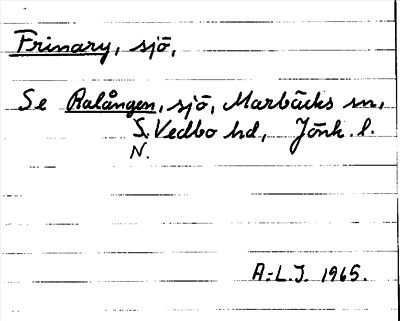 Frinary, sjö,
Se Ralången, sjö, Marbäcks sn,
S. Vedbo hd, Jönk. l.
N.
A-L.J. 1965.